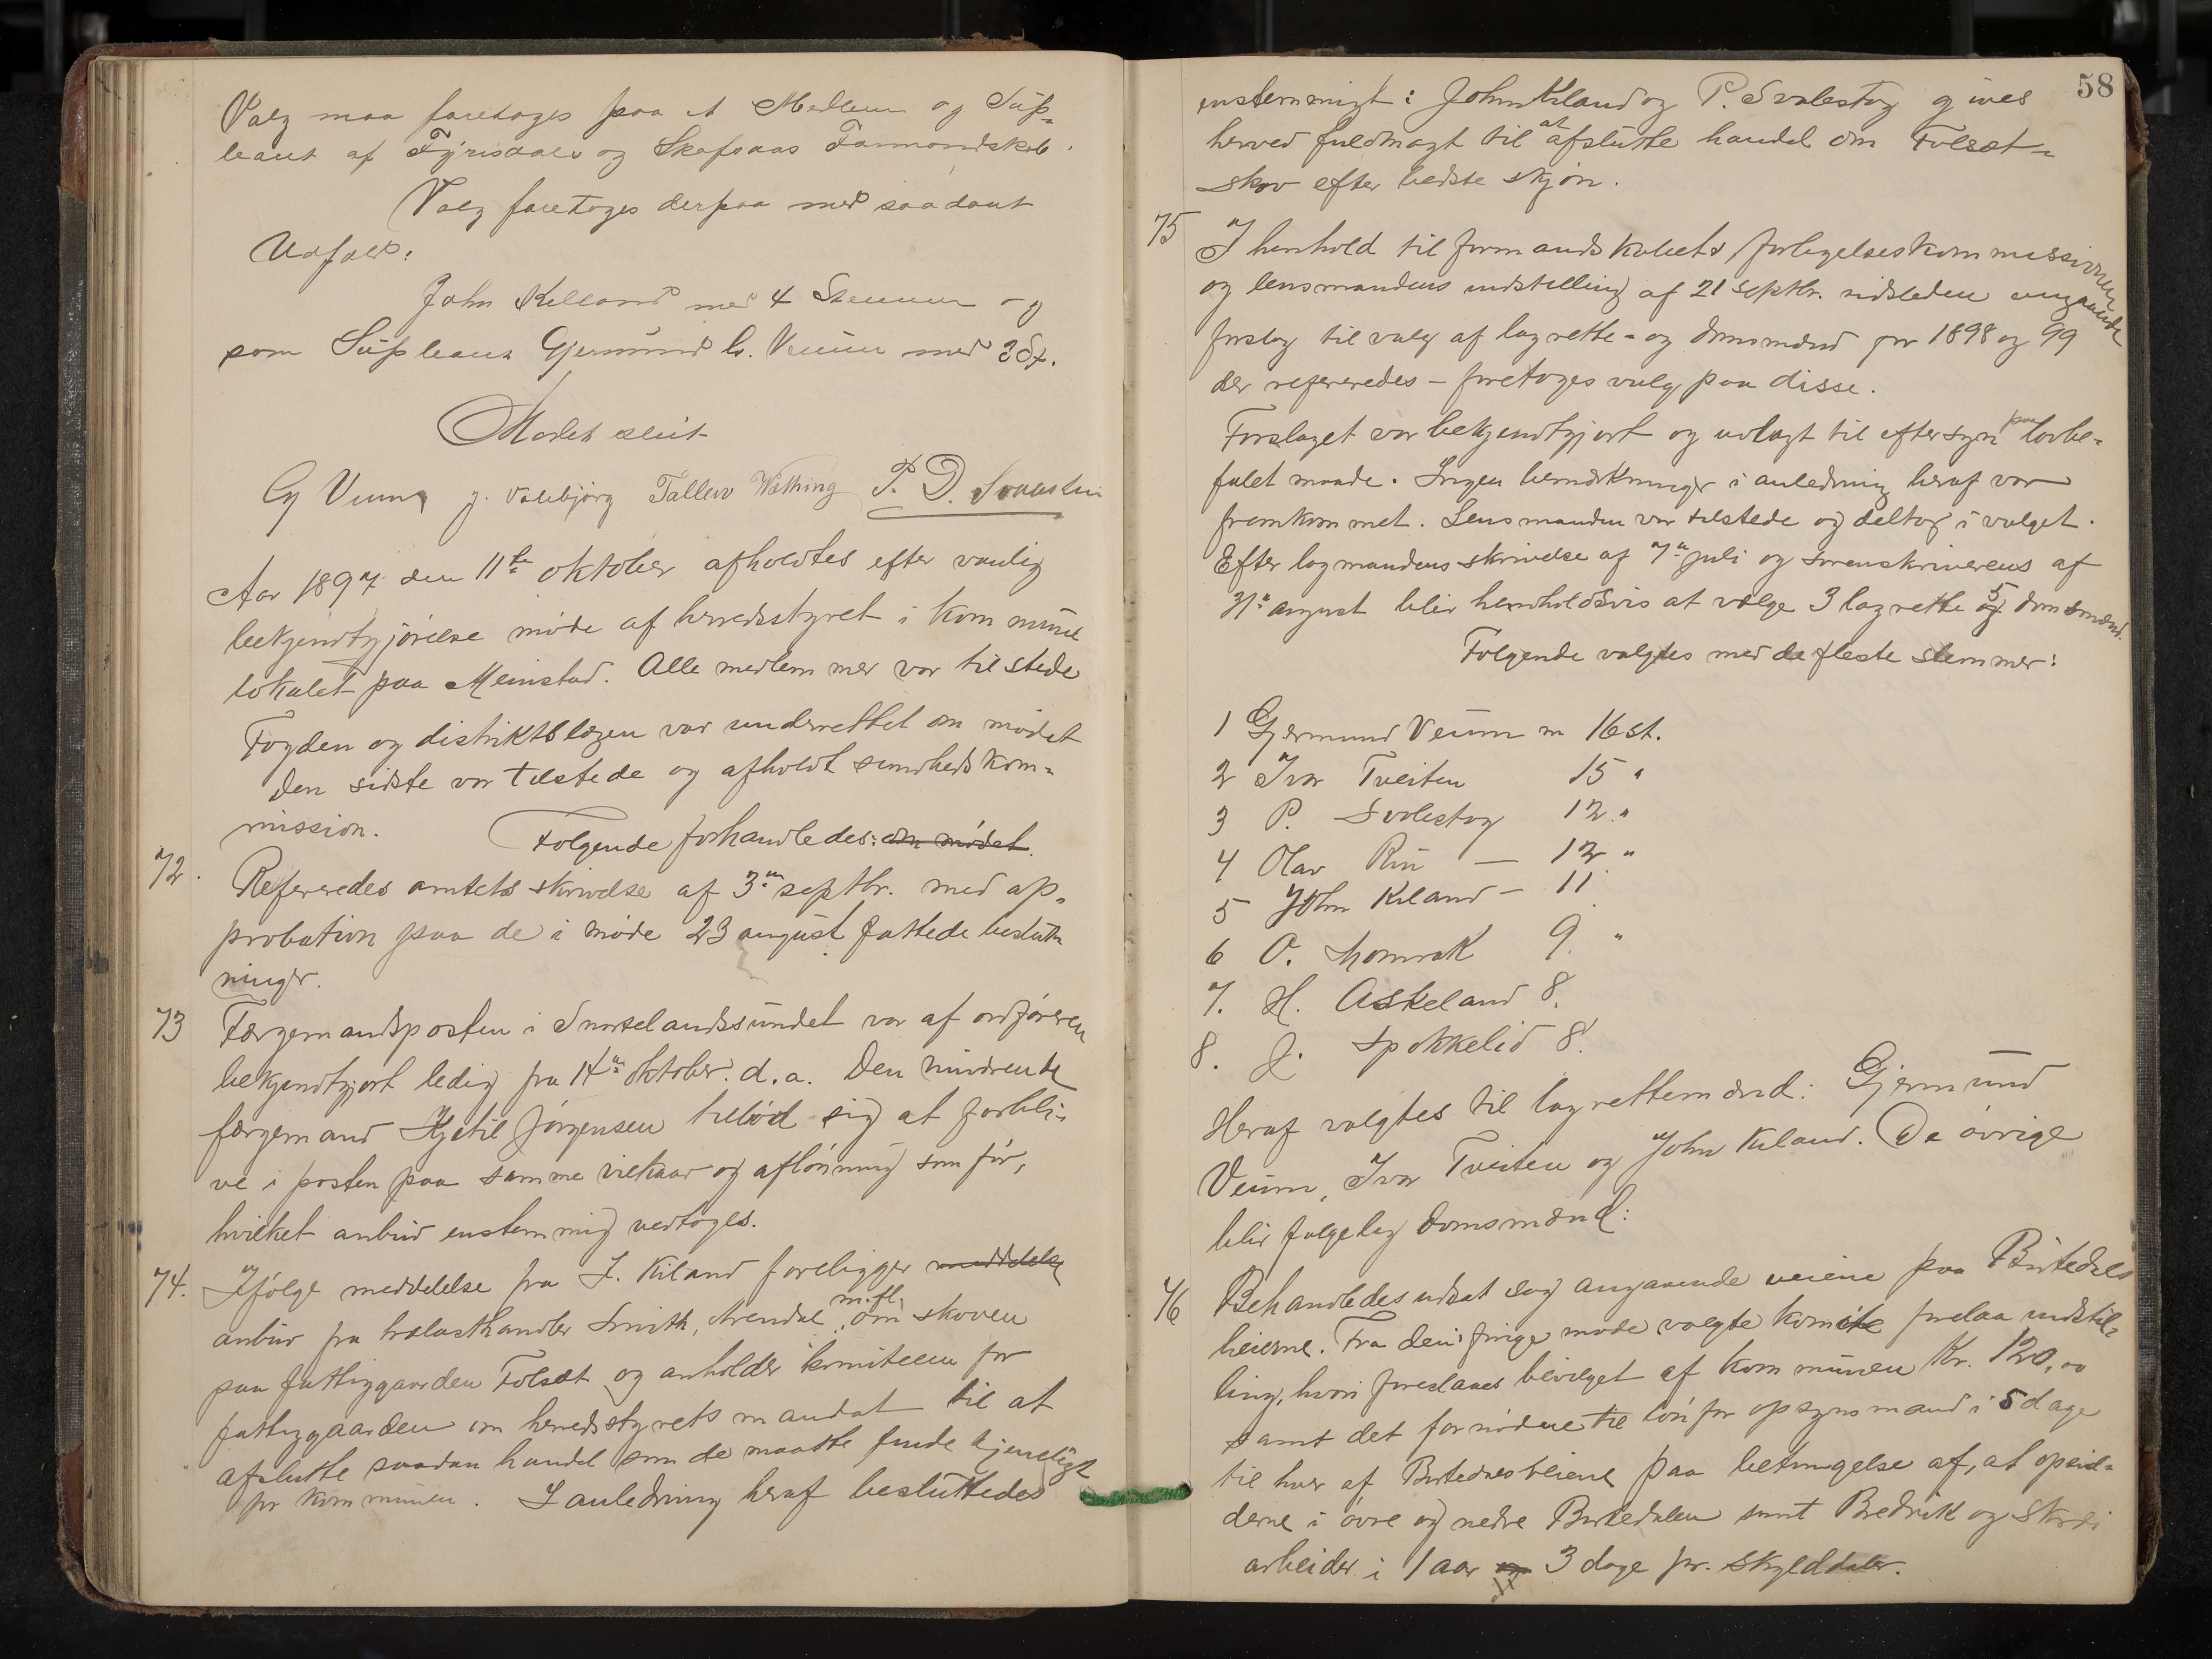 Valg maa foretages paa et Medlem og Sup-
leant af Fyrisdals og Skafsaas Formandskab.
Valg foretages derpaa med saadant
Udfald:
John Kelland med 4 Stemmer og
som Supleant Gjermund G. Veum med 3 St.
Mødet slut
G Veum J. Valebjørg Tallev Wathing P. D.
Aar 1897 den 11te oktober afholdtes efter vanlig
bekjendtgjørelse møde af herredsstyret i kommune
lokalet paa Meinstad. Alle medlemmer var tilstede
Fogden og distriktslægen var underrettet om mødet
den sidste var tilstede og afholdt sundhedskom-
mission. Følgende forhandledes: om mødet.
72. Refereredes amtets skrivelse af 3die septbr. med ap-
probation paa de i møde 23 august fattede beslut
ninger.
73 Færgemandsposten i Snartelandssundet var af ordføreren
bekjendtgjort ledig fra 14de oktober d.a. Den nuværende
færgemand Kjetil Jørgensen tilbød sig at forbli-
ve i posten paa samme vilkaar og aflønning som før,
hvilket anbud enstemmig vedtoges.
74. Ifølge meddelelse fra J. Kiland foreligger meddelelse
anbud fra trælasthandler Smith, Arendal m.fl. om skoven
paa fattiggaarden Folsæt og anholder komiteen for
fattiggaarden om herredsstyrets mandat til at
afslutte saadan handel som de maatte finde tjenligt
for kommunen. I anledning heraf besluttedes
58
enstemmigt: John Kiland og P. Svalestog gives
herved fuldmagt til at afslutte handel om Folsæt-
skov efter bedste skjøn.
75 I henhold til formandskabets, forligelseskommissionen
og lensmandens indstilling af 21 septbr. sidstleden angaaende
forslag til valg af lagrette- og domsmænd for 1898 og 99
der refereredes - foretoges valg paa disse.
Forslaget var bekjendtgjort og udlagt til eftersyn paa lovbe-
falet maade. Ingen bemærkninger i anledning heraf var
fremkommet. Lensmanden var tilstede og deltog i valget.
Efter lagmandens skrivelse af 7de juli og sorenskriverens af
31te august blir henholdsvis at vælge 3 lagrette og 5 domsmænd.
Følgende valgtes med de fleste stemmer:
1 Gjermund Veum m 16 st.
2 Ivar Tveiten 15 "
3 P. Svalestog 12 "
4 Olav Rui — 12 "
5 John Kiland — 11
6 O. Momrak 9. "
7. H. Askeland 8.
8. J. Spokkelid 8.
Heraf valgtes til lagrettemænd: Gjermund
Veum, Ivar Tveiten og John Kiland. De øvrige
blir følgelig domsmænd:
76 Behandledes udsat sag angaaende veiene paa Birtedals
heierne. Fra den i forrige møde valgte komite forelaa indstil-
ling, hvori foreslaaes bevilget af kommunen Kr. 120,00
samt det fornødne til løn for opsynsmand i 5 dage
til hver af Birtedalsveiene paa betingelse af, at opsid-
derne i øvre og nedre Birtedalen samt Bredvik og
arbeider i 1 aar 3 dage pr. skylddaler.